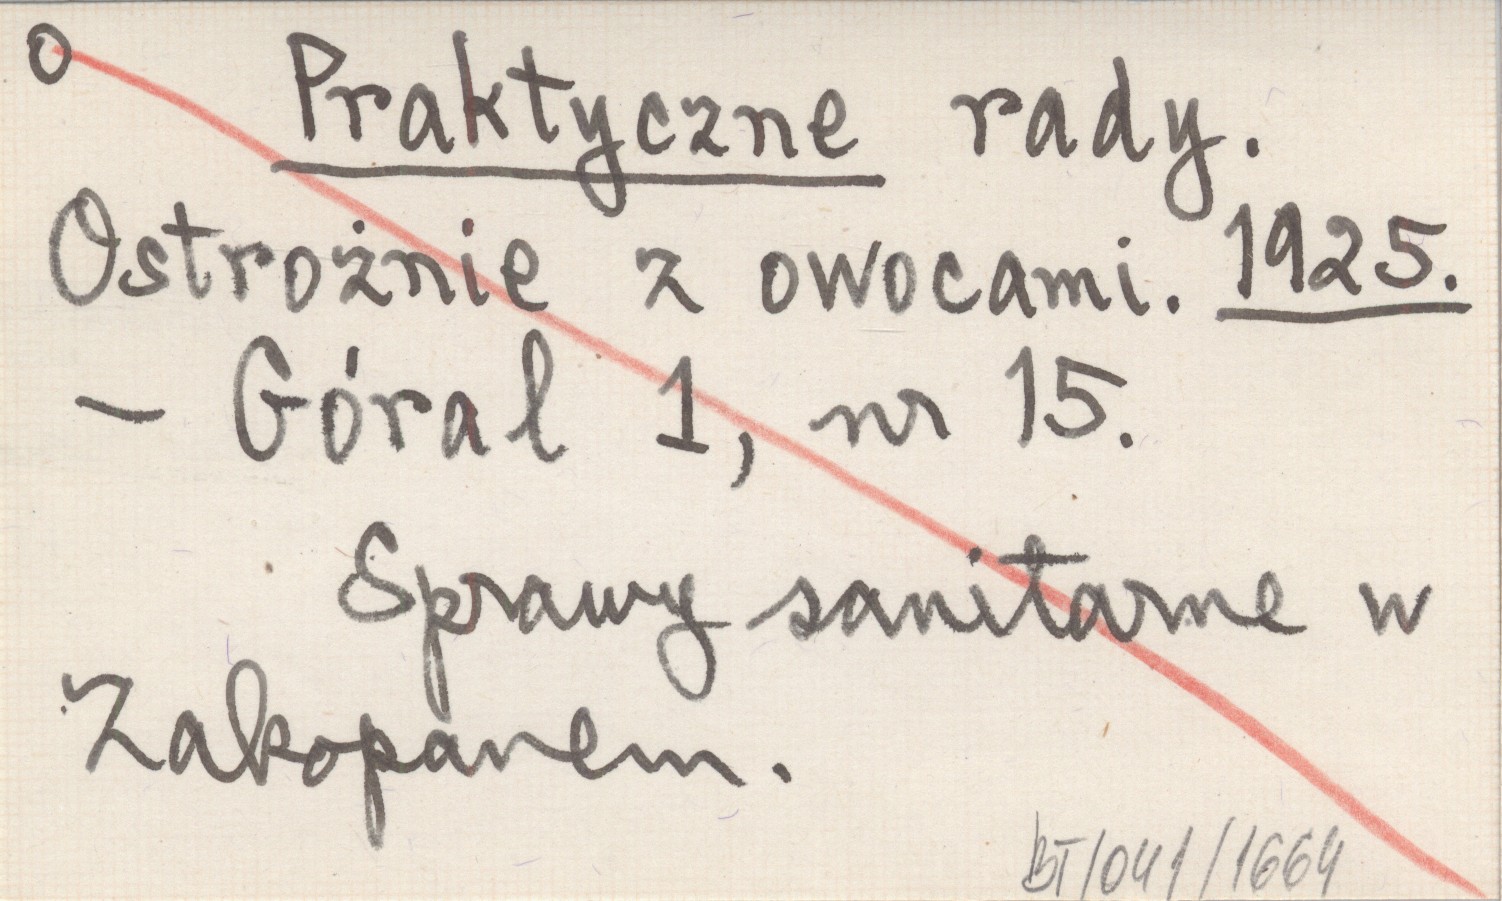 o Praktyczne rady.
Ostrożnie z owocami. 1925.
- Góral 1, nr 15.
Sprawy sanitarne w
Zakopanem.
BT/041/1664